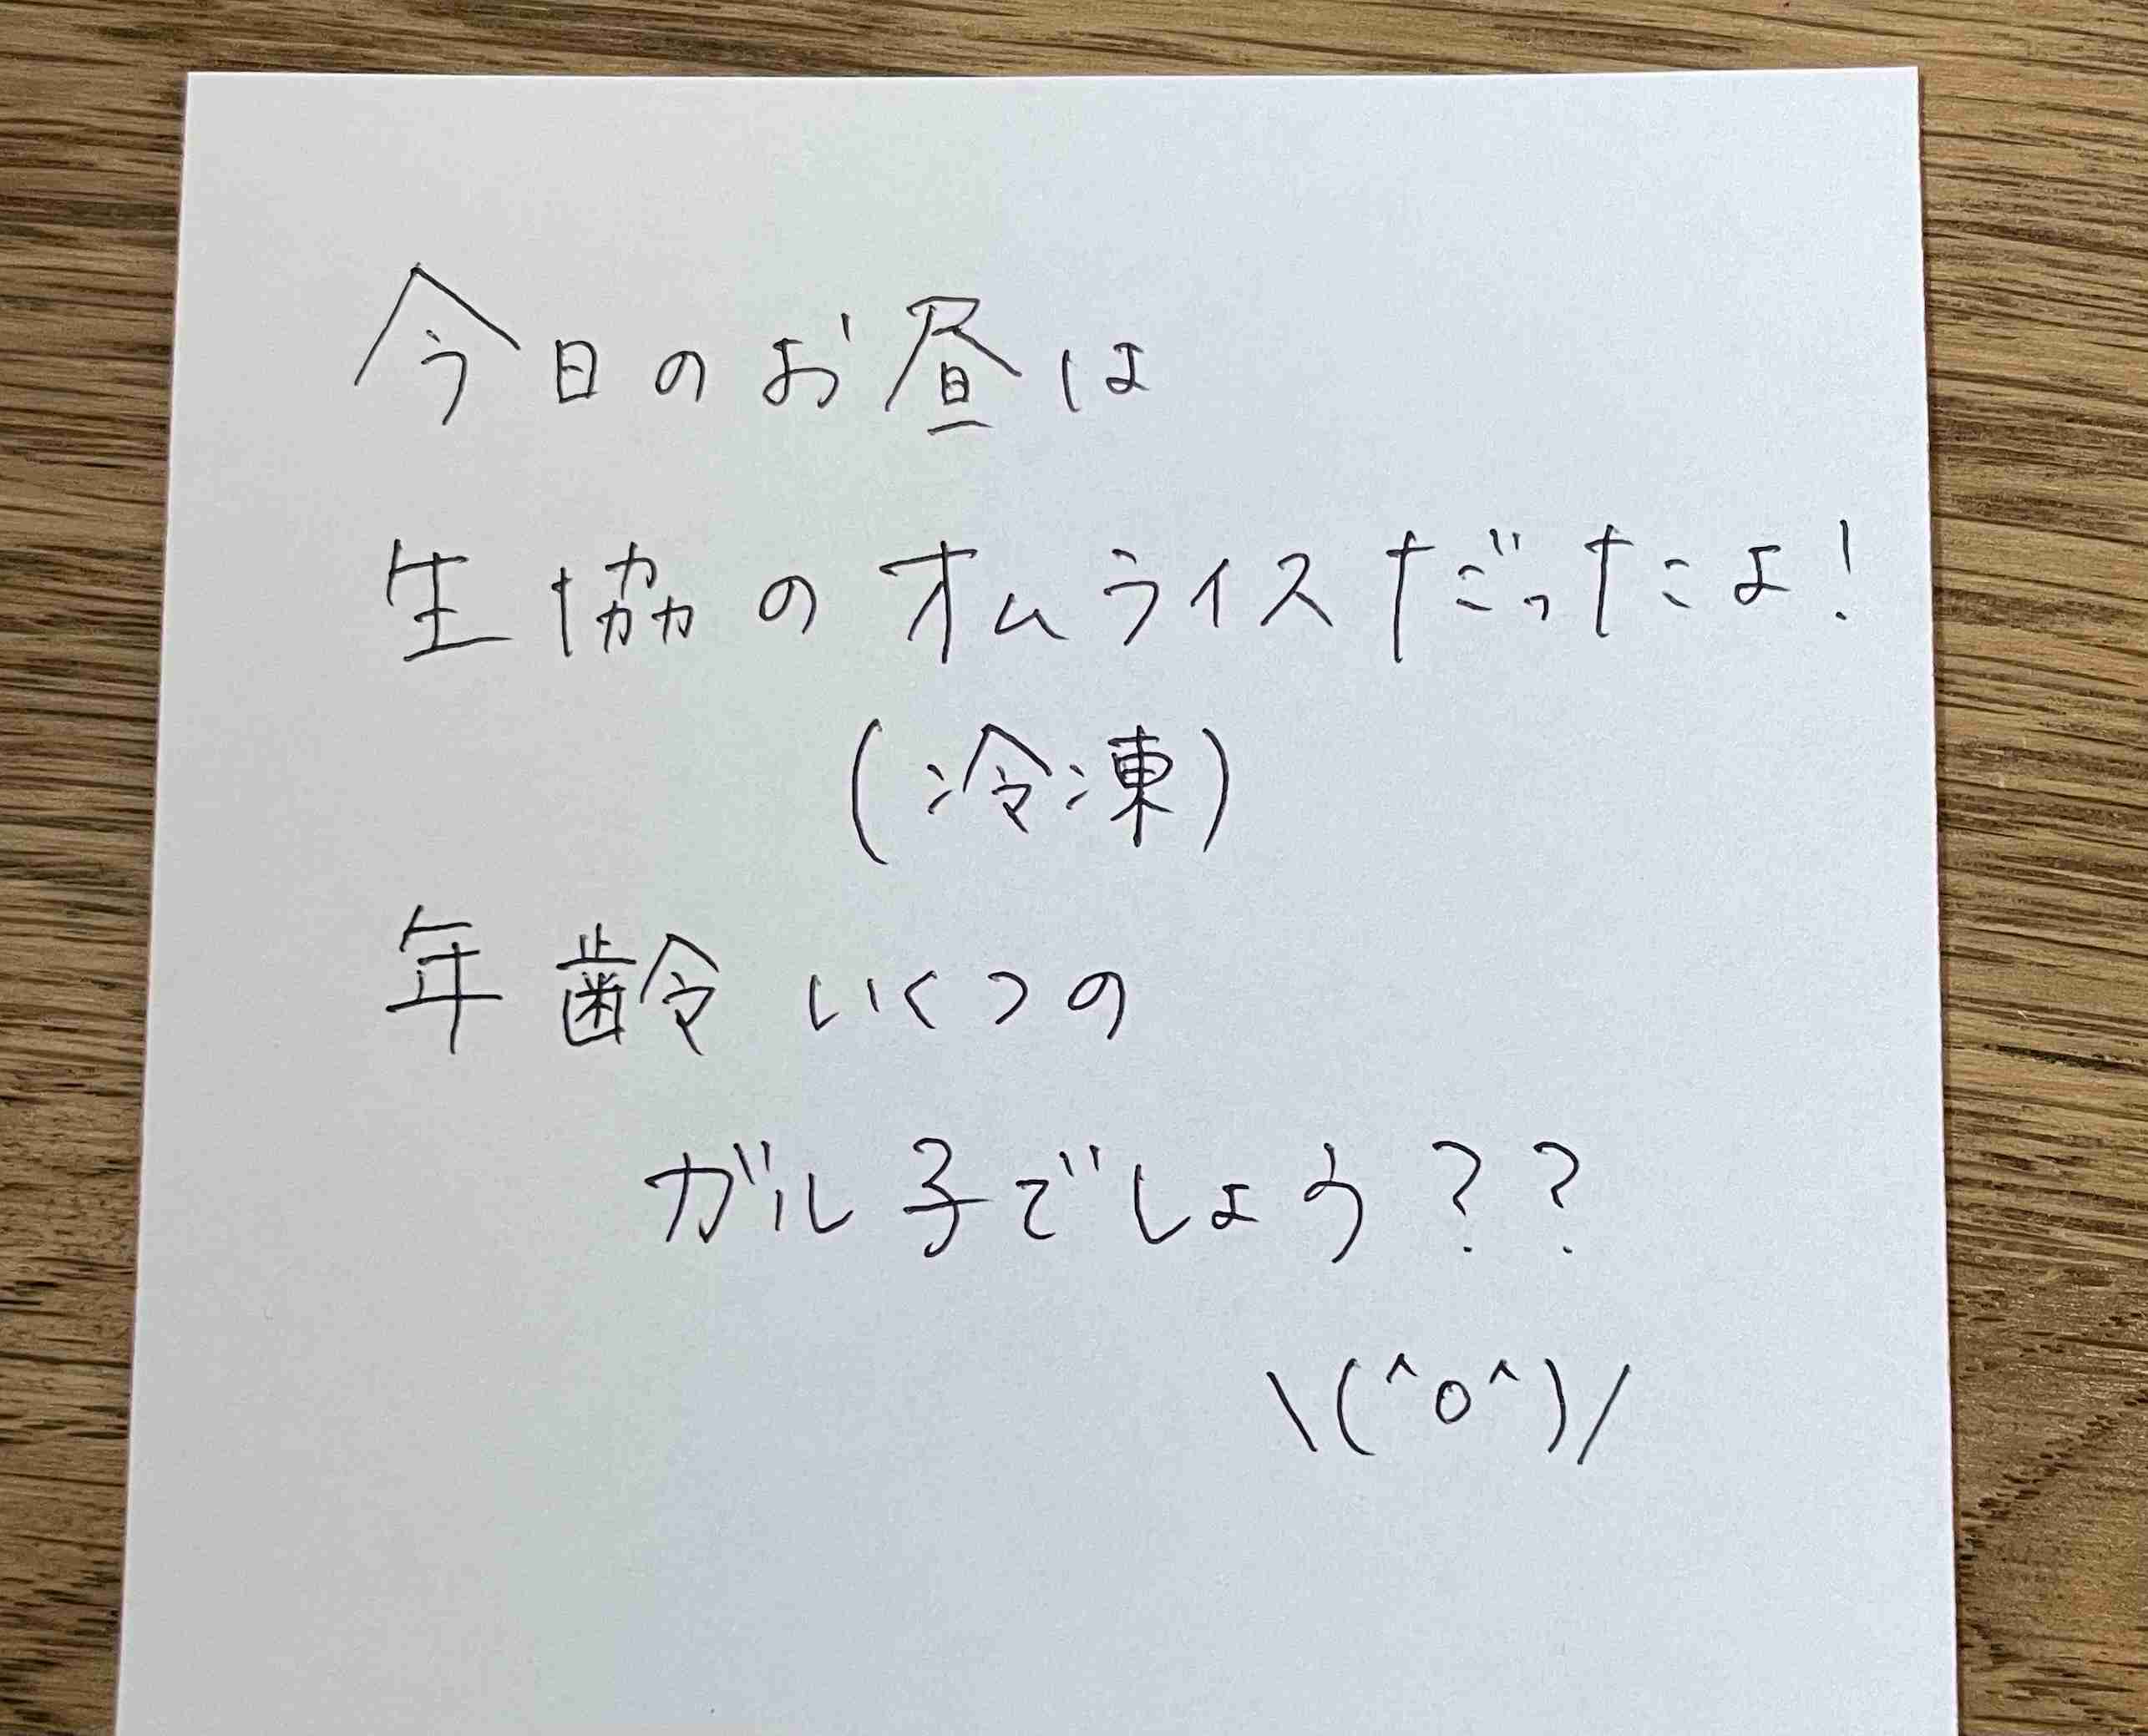 今日のお昼は
生協のオムライスだったよ!
(冷凍)
年齢いくつの
ガル子でしょう??
\(^o^)/